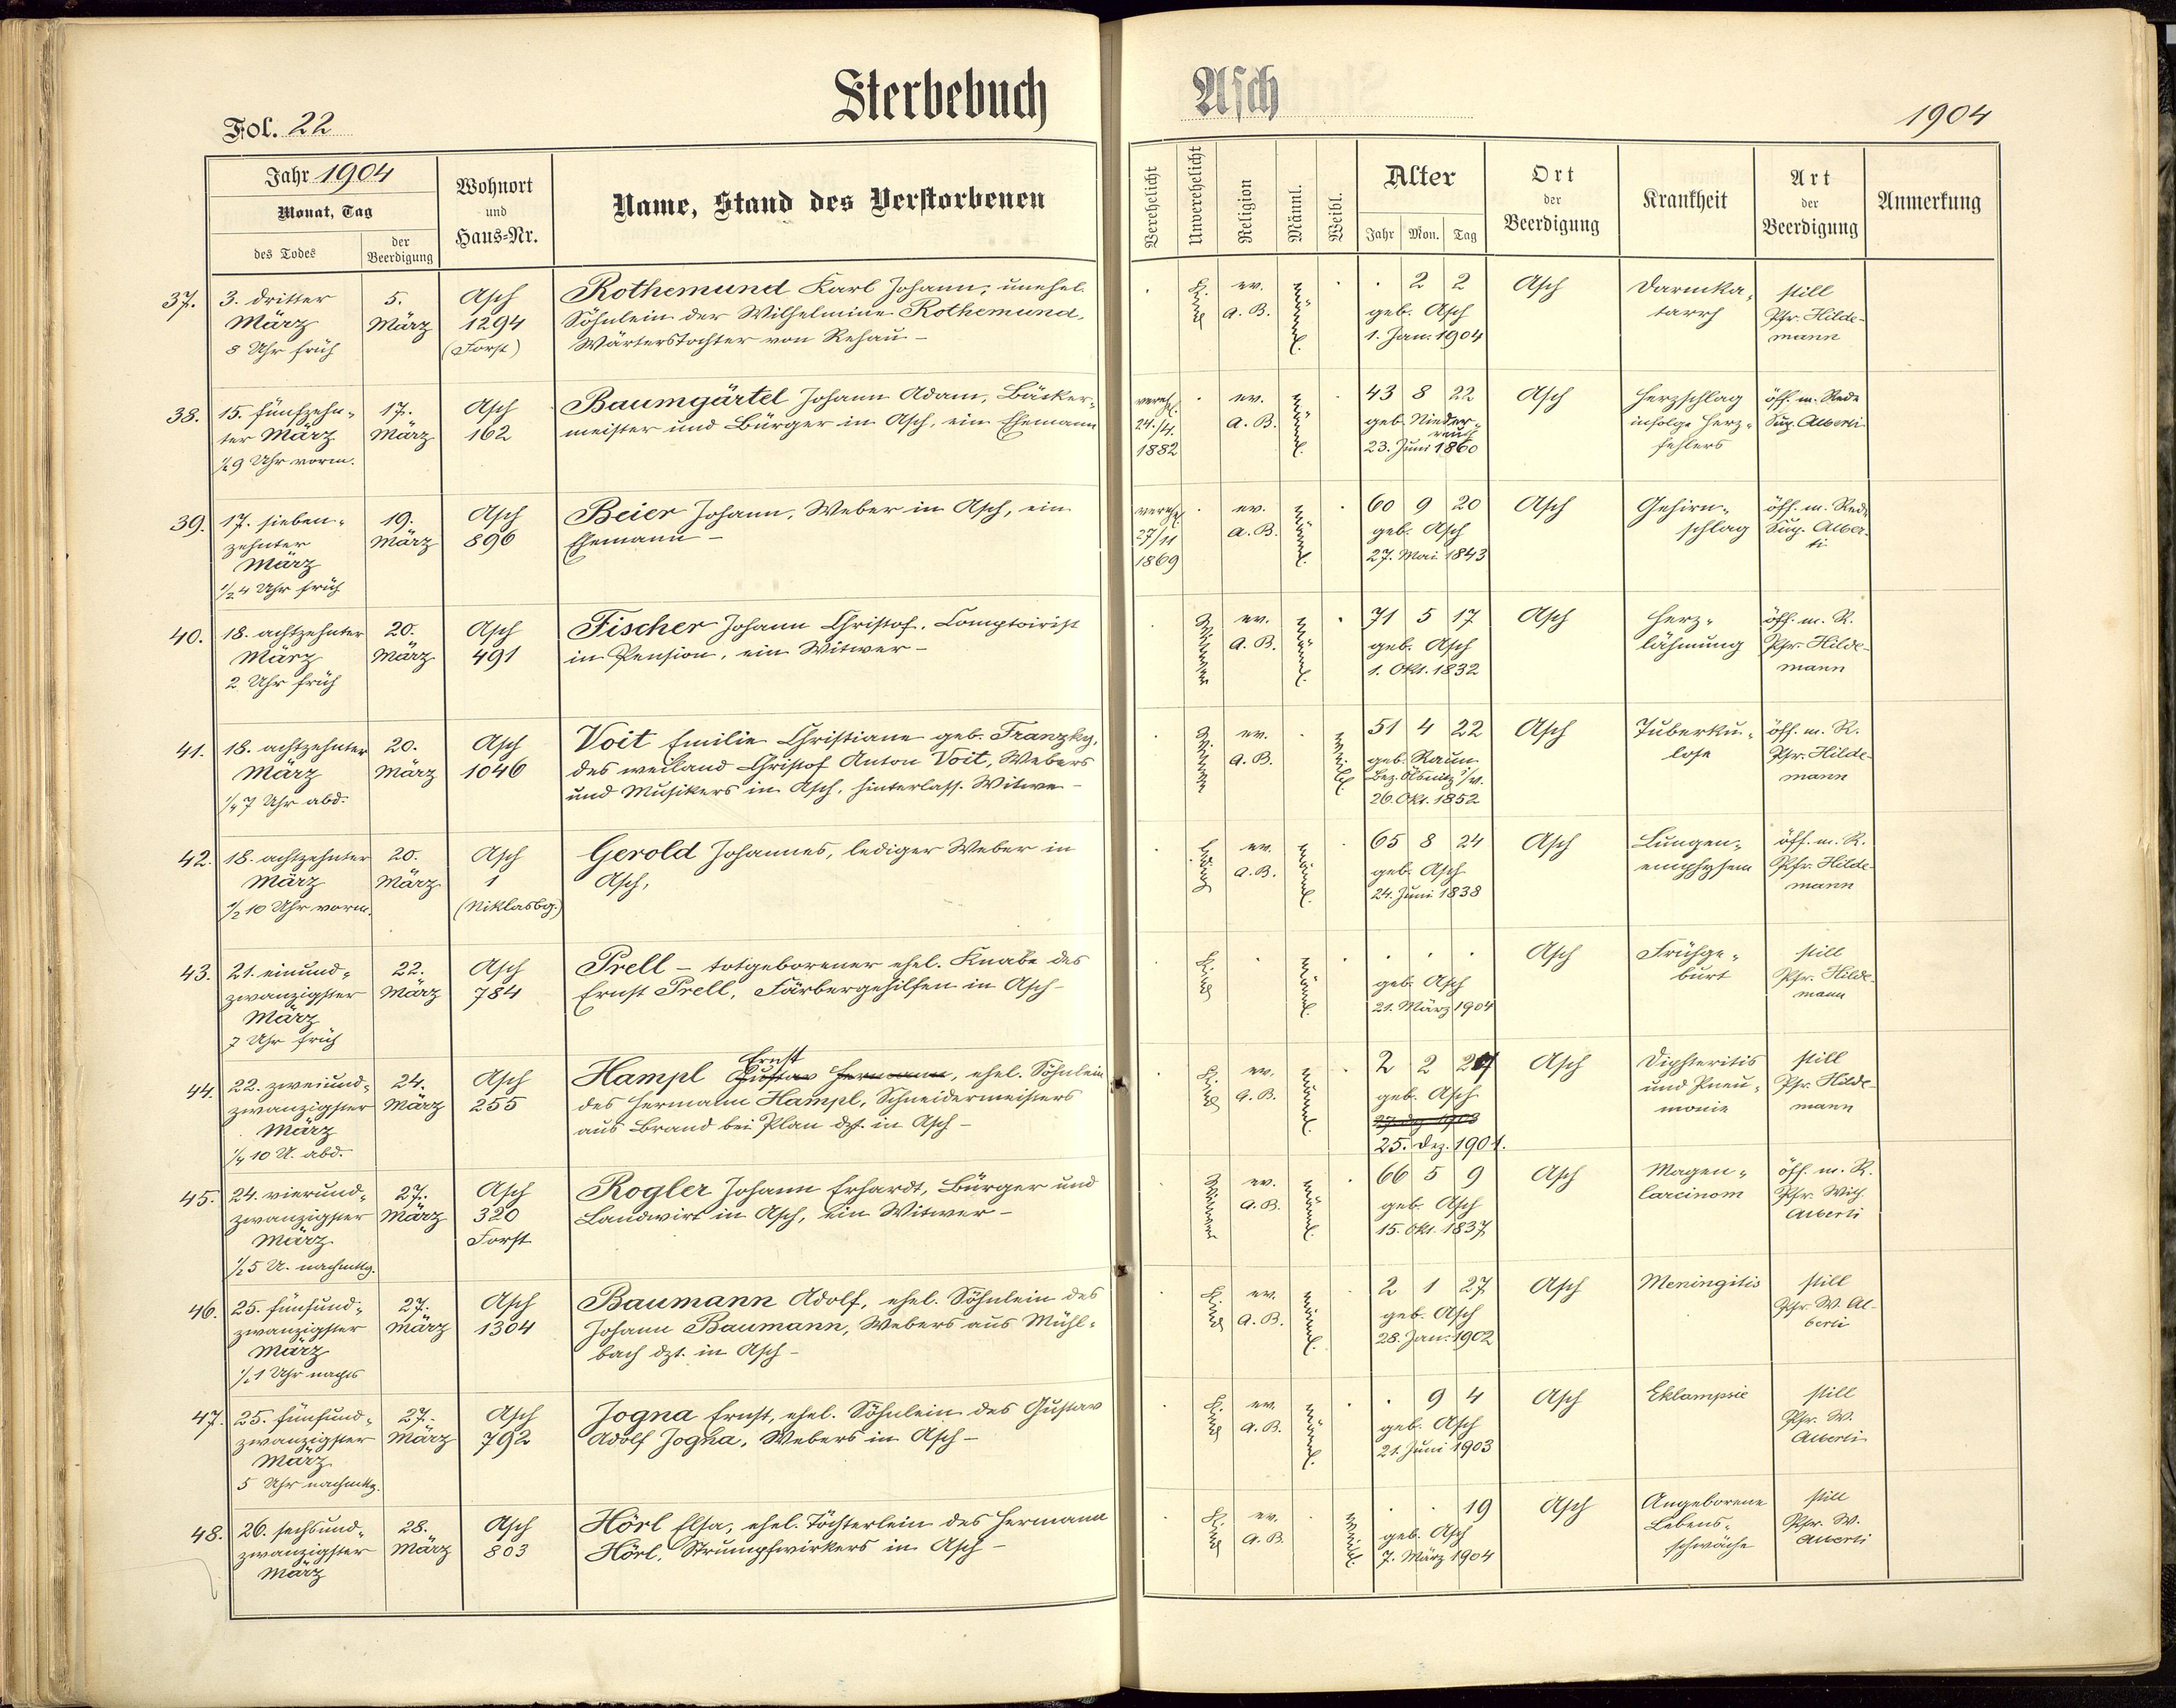 Sterbebuch Asch
Fol. 22
1904
Jahr 1904
Monat, Tag
des Todes
der Beerdigung
Wohnort
und
Haus-Nr.
Name, Stand des Verstorbenen
Verehelicht
Unverehelicht
Religion
Männl.
Weibl.
Alter
Jahr Mon. Tag
Ort
der
Beerdigung
Krankheit
Art
der
Beerdigung
Anmerkung
37. 3. dritter 5. Asch Rothemund Karl Johann, unehel. Kind ev. männl. 2 2 Asch Darmka- still
März März 1294 Söhnlein der Wilhelmine Rothemund, a. B. geb. Asch tarrh Pfr. Hilde-
8 Uhr früh (Forst) Wärterstochter von Rehau – 1. Jan. 1904 mann
38. 15. fünfzehn- 17. Asch Baumgärtel Johann Adam, Bäcker- verehl. ev. männl. 43 8 22 Asch Herzschlag öff. m. Rede
ter März März 162 meister und Bürger in Asch, ein Ehemann 24./4. a. B. geb. Nieder- infolge Herz- Sup. Alberti
reuth
½9 Uhr vorm. 1882 23. Juni 1860 fehlers
39. 17. sieben- 19. Asch Beier Johann, Weber in Asch, ein verehl. ev. männl. 60 9 20 Asch Gehirn- öff. m. Rede
zehnter März 896 Ehemann – 27/11 a. B. geb. Asch schlag Sup. Alber-
März 1869 27. Mai 1843 ti
½4 Uhr früh
40. 18. achtzehnter 20. Asch Fischer Johann Christof, Comptoirist Witwer ev. männl. 71 5 17 Asch Herz- öff. m. R.
März März 491 in Pension, ein Witwer – a. B. geb. Asch lähmung Pfr. Hilde-
2 Uhr früh 1. Okt. 1832 mann
41. 18. achtzehnter 20. Asch Voit Emilie Christiane geb. Franzky, Witwe ev. weibl. 51 4 22 Asch Tuberku- öff. m. R.
März März 1046 des weiland Christof Anton Voit, Webers a. B. geb. Raun lose Pfr. Hilde-
¼7 Uhr abd. und Musikers in Asch, hinterlass. Witwe – Bez. Ölsnitz i/v. mann
26. Okt. 1852
42. 18. achtzehnter 20. Asch Gerold Johannes, lediger Weber in ledig ev. männl. 65 8 24 Asch Lungen- öff. m. R.
März März 1 Asch, a. B. geb. Asch emphysem Pfr. Hilde-
½10 Uhr vorm. (Niklasbg.) 24. Juni 1838 mann
43. 21. einund- 22. Asch Prell – totgeborener ehel. Knabe des Kind männl. Asch Frühge- still
zwanzigster März 784 Ernst Prell, Färbergehilfen in Asch – geb. Asch burt Pfr. Hilde-
März 21. März 1904 mann
7 Uhr früh
Ernst
44. 22. zweiund- 24. Asch Hampl Gustav Hermann, ehel. Söhnlein Kind ev. männl. 2 2 Asch Diphteritis still
zwanzigster März 255 des Hermann Hampl, Schneidermeisters a. B. geb. Asch und Pneu- Pfr. Hilde-
März aus Brand bei Plan dzt. in Asch – monie mann
¼10 U. abd. 25. Dez. 1901.
45. 24. vierund- 27. Asch Rogler Johann Erhardt, Bürger und Witwer ev. männl. 66 5 9 Asch Magen- öff. m. R.
zwanzigster März 320 Landwirt in Asch, ein Witwer – a. B. geb. Asch Carcinom Pfr. Wilh.
März Forst 15. Okt. 1837 Alberti
½5 U. nachmttg.
46. 25. fünfund- 27. Asch Baumann Adolf, ehel. Söhnlein des Kind ev. männl. 2 1 27 Asch Meningitis still
zwanzigster März 1304 Johann Baumann, Webers aus Mühl- a. B. geb. Asch Pfr. W. Al-
März bach dzt. in Asch – 28. Jan. 1902 berti
1 Uhr nachts
47. 25. fünfund- 27. Asch Jogna Ernst, ehel. Söhnlein des Gustav Kind ev. männl. 9 4 Asch Eklampsie still
zwanzigster März 792 Adolf Jogna, Webers in Asch – a. B. geb. Asch Pfr. W.
März 21. Juni 1903 Alberti
5 Uhr nachmttg.
48. 26. sechsund- 28. Asch Hörl Elsa, ehel. Töchterlein des Hermann Kind ev. weibl. 19 Asch Angeborene still
zwanzigster März 803 Hörl, Strumpfwirkers in Asch – a. B. geb. Asch Lebens- Pfr. W.
März 7. März 1904 schwäche Alberti